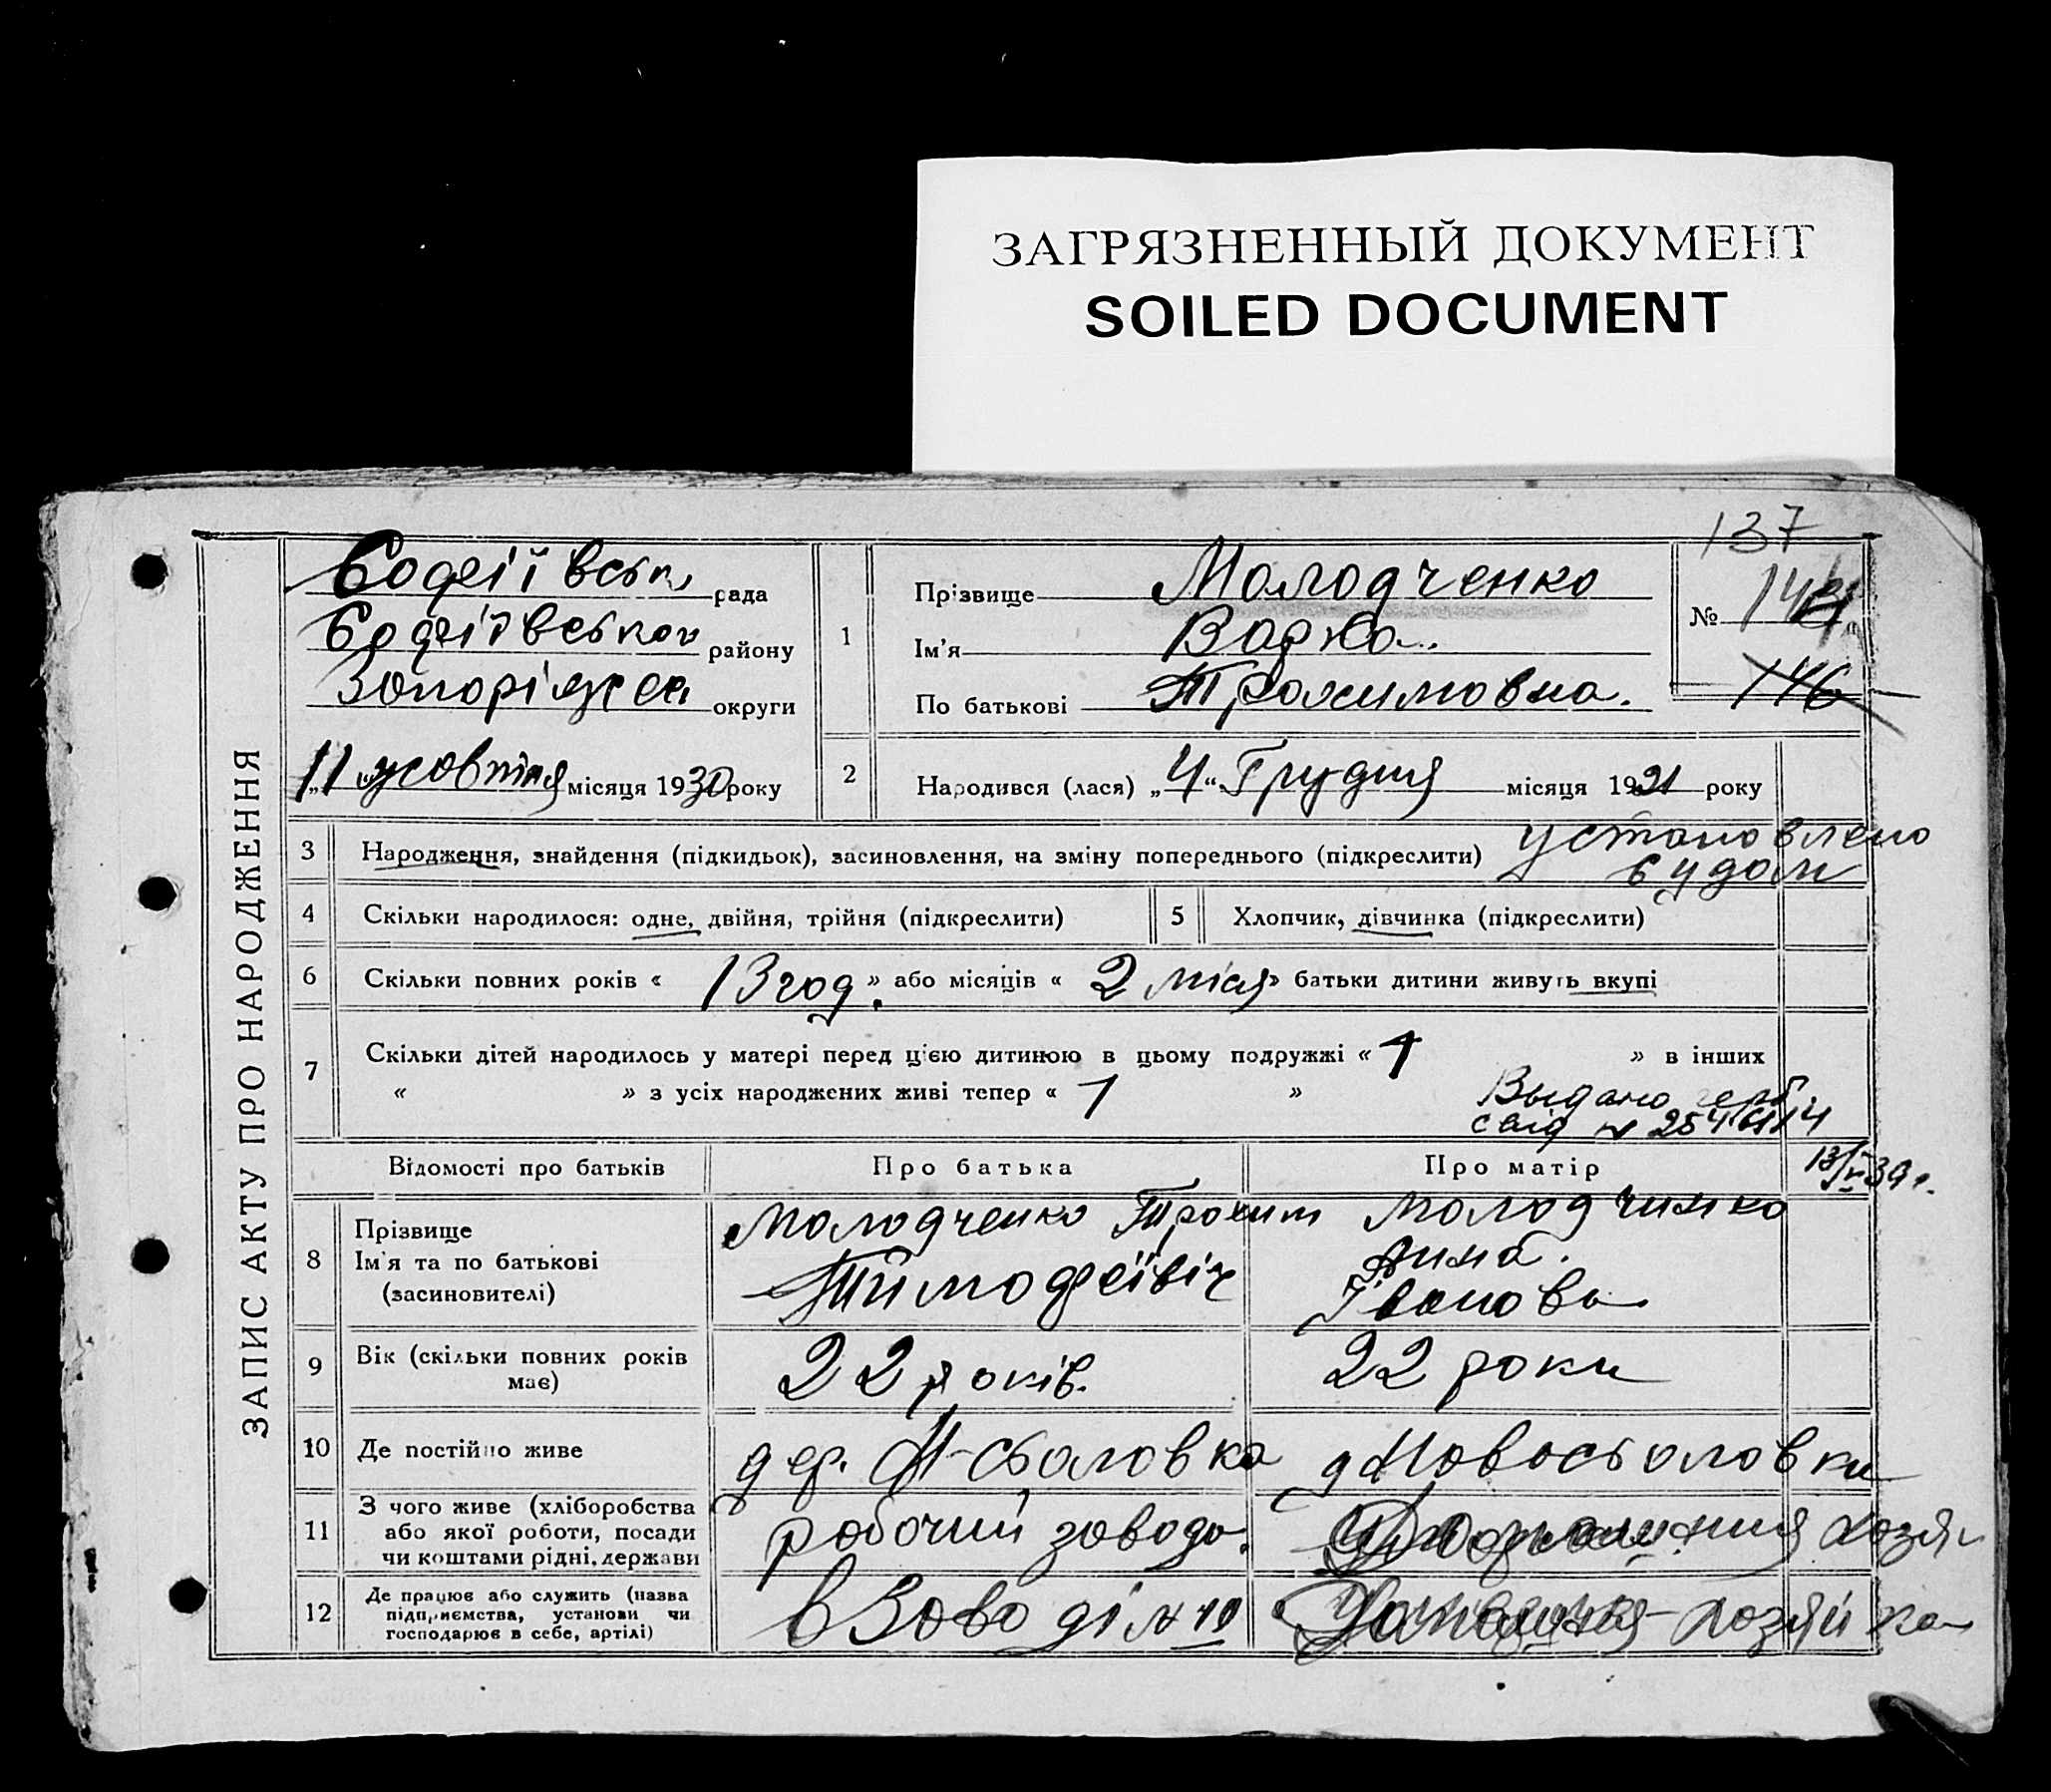 ЗАГРЯЗНЕННЫЙ ДОКУМЕНТ
SOILED DOCUMENT
137
ЗАПИС АКТУ ПРО НАРОДЖЕННЯ
Софеіївськ рада
Софеіївсько району
Запоріжся округи
„11“ жовтня місяця 1930 року
1
Прізвище Молодченко
Ім'я Варка.
По батькові Трохимовна.
№ 144
146
2 Народився (лася) „4“ Грудня місяця 1921 року
3 Народження, знайдення (підкидьок), засиновлення, на зміну попереднього (підкреслити) установлено
судом
4 Скільки народилося: одне, двійня, трійня (підкреслити) 5 Хлопчик, дівчинка (підкреслити)
6 Скільки повних років « 13 год. » або місяців « 2 міся » батьки дитини живуть вкупі
7 Скільки дітей народилось у матері перед цією дитиною в цьому подружжі « 1 » в інших
« » з усіх народжених живі тепер « 1 »
Выдано герб
свід №
13/V 39 г.
Відомості про батьків Про батька Про матір
8 Прізвище
Ім'я та по батькові
(засиновителі)
Молодченко Трохим
Тимофеївіч
Молодчинко
Анна.
Іванова
9 Вік (скільки повних років
має)
22 років.
22 роки
10 Де постійно живе дер. Н-сьоловка д Новосьоловки
11 З чого живе (хліборобства
або якої роботи, посади
чи коштами рідні, держави
робочий заводо.
хозя-
12 Де працює або служить (назва
підприємства, установи чи
господарює в себе, артілі)
в Заводі № 10
хозяйка